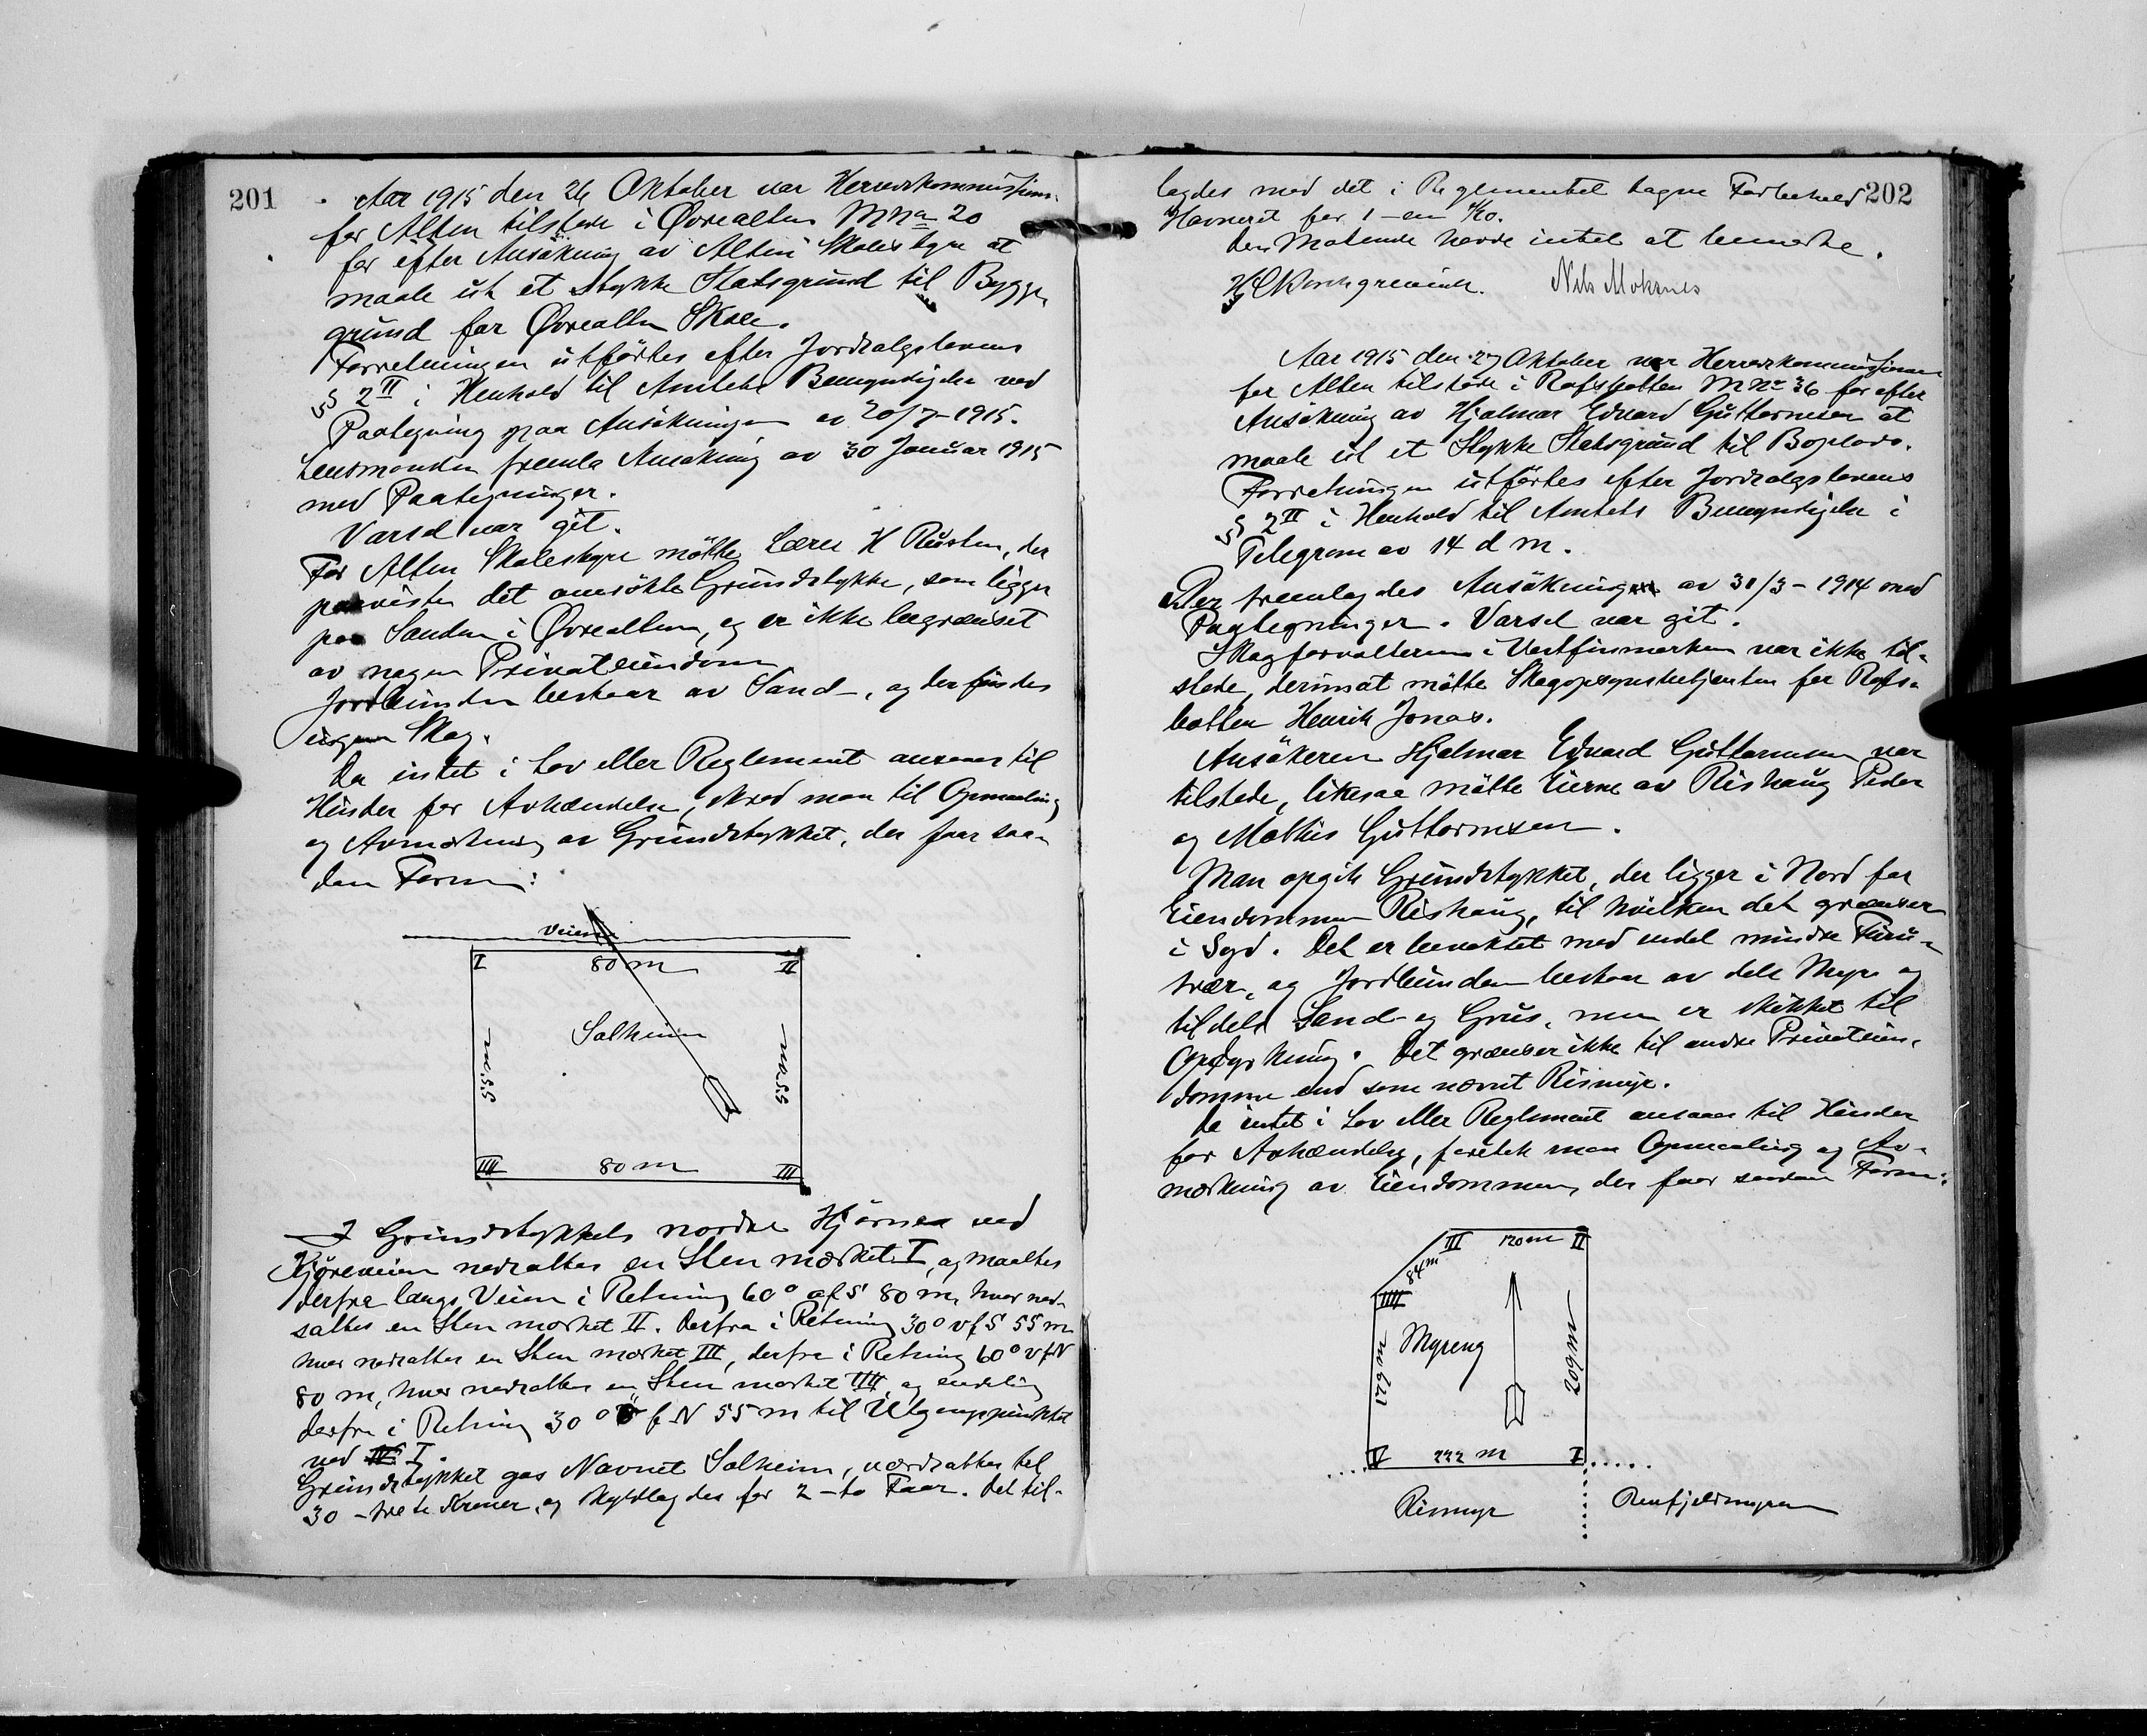 201
Aar 1915 den 26 Oktober var Herredskommissionen
for Alten tilstede i Øvrealten M No 20
for efter Ansökning av Alten Skolestyre at
maale ut et Stykke Statsgrund til Bygge-
grund for Øvrealten Skole.
Forretningen utförtes efter Jordsalgslovens
§ 2 II i Henhold til Amtets Bemyndigelse ved
Paategning paa Ansökningen av 20/7-1915.
Lensmanden fremla Ansökning av 30 Januar 1915
med Paategninger.
Varsel var git.
For Alten Skolestyre mötte Lærer H Rusten, der
paaviste det ansökte Grundstykke, som ligger
paa Sanden i Øvrealten, og er ikke begrænset
av nogen Privateiendom
Jordbunden bestaar av Sand-, og der findes
ingen Skog.
Da intet i Lov eller Reglement ansaaes til
Hinder for Avhændelse, skred man til Opmaaling
og Avmerkning av Grundstykket, der faar saa-
dan Form:
Veien
I 80 m II
Solheim
55 m 55 m
IIII 80 m III
I Grundstykkets nordre Hjörne ved
Kjöreveien nedsattes en Sten mærket I, og maaltes
derfra langs Veien i Retning 60° øf S 80 m, hvor ned-
sattes en Sten mærket II. Derfra i Retning 30° v f S 55 m
hvor nedsattes en Sten mærket III, derfra i Retning 60° v f N
80 m, hvor nedsattes en Sten mærket IIII, og endelig
derfra i Retning 30° ö f N 55 m til Utgangspunktet
ved I.
Grundstykket gas Navnet Solheim, værdsattes til
30 - treti Kroner, og skyldlagdes for 2 - to Øre. Det til-
202
lagdes med det i Reglementet tagne Forbehold
Havneret for 1 - en
Den Mötende havde intet at bemerke.
Nils Moksnes
Aar 1915 den 27 Oktober var Herredskommissionen
for Alten tilstede i Rafsbotten M No 36 for efter
Ansökning av Hjalmar Edvard Guttormsen at
maale ut et Stykke Statsgrund til Boplads.
Forretningen utförtes efter Jordsalgslovens
§ 2 II i Henhold til Amtets Bemyndigelse i
Telegram av 14 d m.
Der fremlagdes Ansökning av 31/3-1914 med
Paategninger. Varsel var git.
Skogforvalteren i Vestfinmarken var ikke til-
stede, derimot mötte Skogopsynsbetjenten for Rafs-
botten Henrik Jonas.
Ansökeren Hjalmar Edvard Guttormsen var
tilstede, likesaa mötte Eierne av Rishaug Peder
og Mathis Guttormsen.
Man opgik Grundstykket, der ligger i Nord for
Eiendommen Rishaug, til hvilken det grænser
i Syd. Det er bevokset med endel mindre Furu-
trær, og Jordbunden bestaar av dels Myr og
tildels Sand- og Grus, men er skikket til
Opdyrkning. Det grænser ikke til andre Privateien-
domme end som nævnt Rismyr.
Da intet i Lov eller Reglement ansaaes til Hinder
for Avhændelse, foretok man Opmaaling og Av-
merkning av Eiendommen, der faar saadan Form:
III 120 m II
84 m
IIII
Myreng
179 m 209 m
V 222 m I
Rismyr Renfjeldmyren